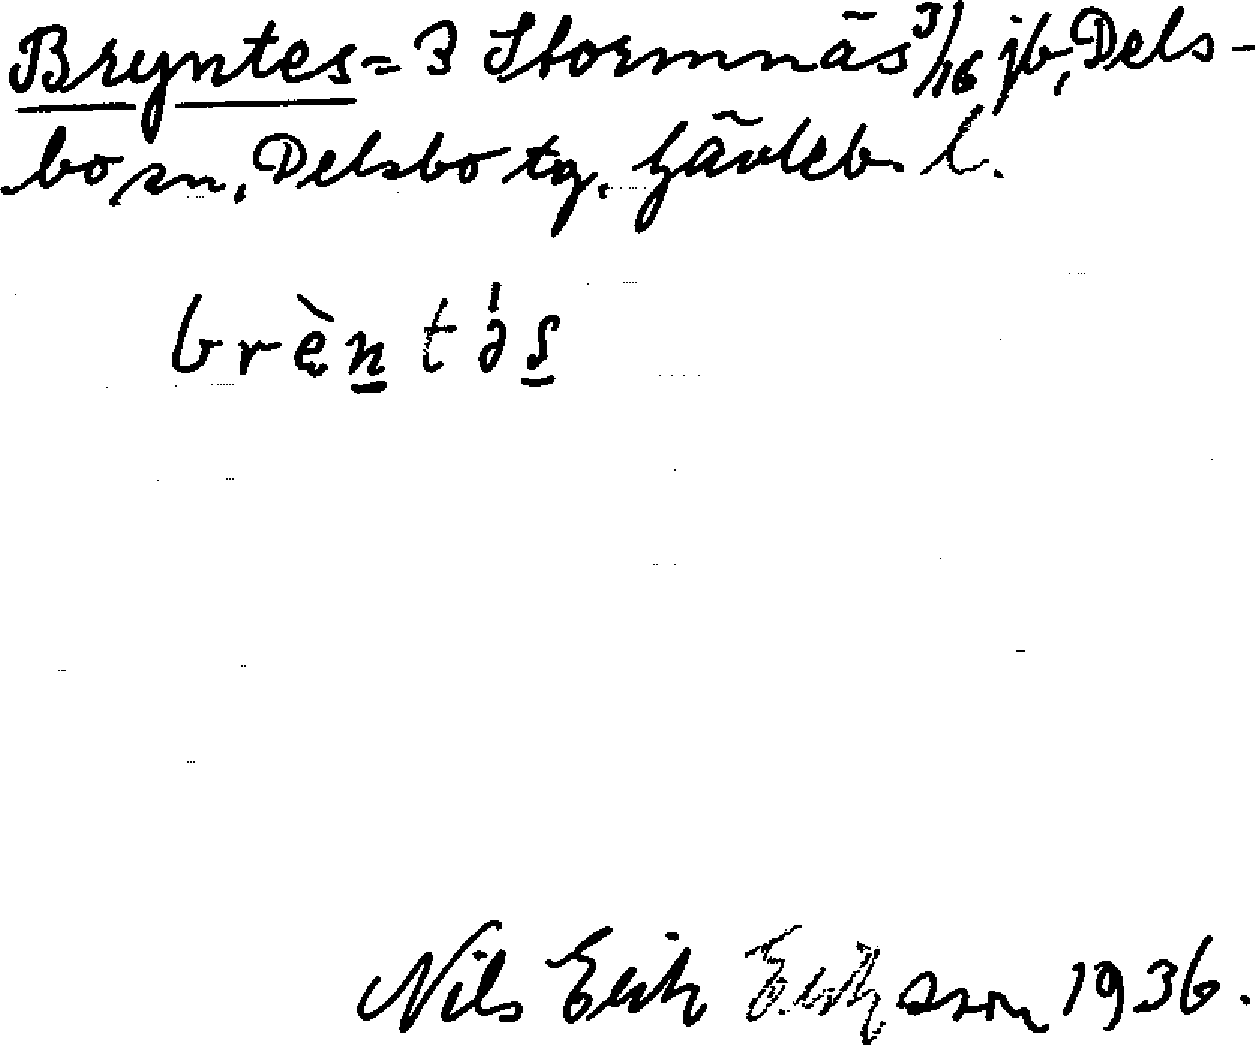 Bryntes = 3 Stormnäs 3/16 jb, Dels-
bo sn, Delsbo tg, Gävleb. l.
brèntəs
Nils Erik Eriksson 1936.